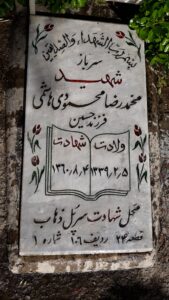 بسم رب الشهداء و الصدیقین
سرباز
شهید
محمدرضا محمودی هاشمی
فرزند حسین
ولادت شهادت
۱۳۳۹/۲/۵ ۱۳۶۰/۸/۴
محل شهادت سرپل ذهاب
قطعه ۲۴ ردیف ۱۰۶ شماره ۱